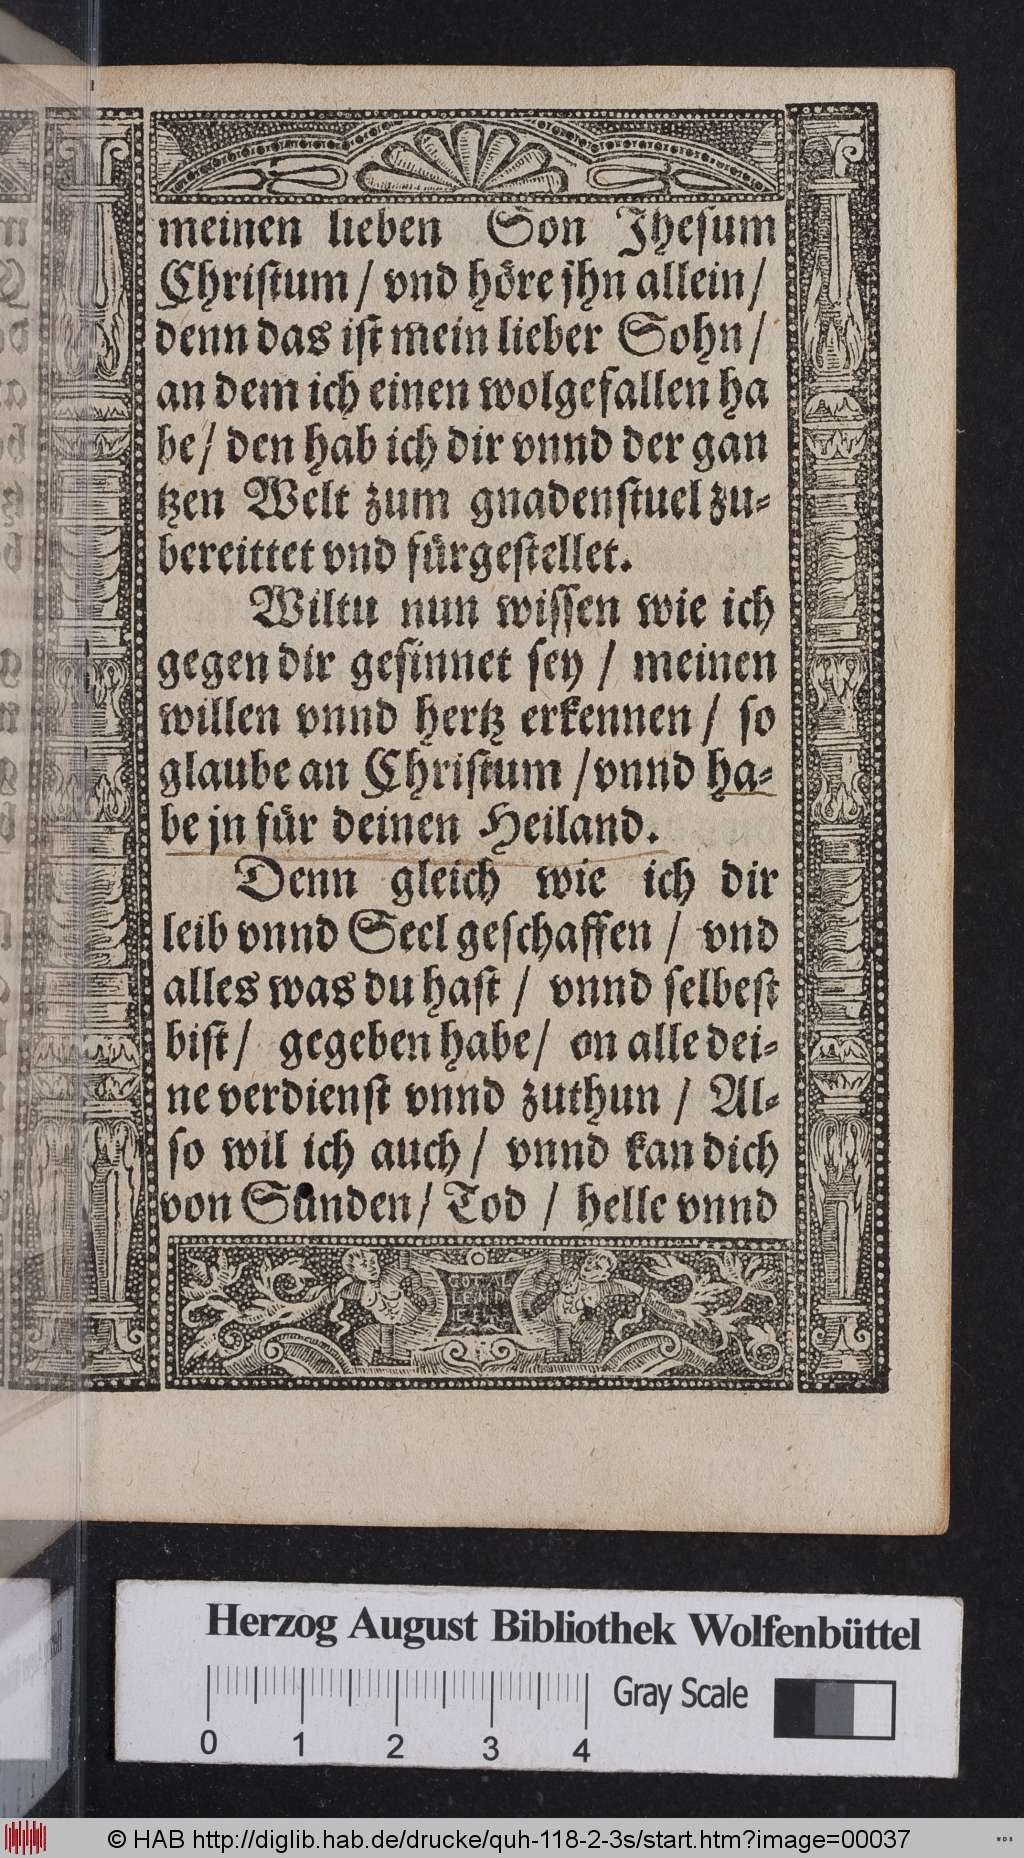 meinen lieben Son Jhesum
Christum / vnd höre jhn allein /
denn das ist mein lieber Sohn /
an dem ich einen wolgefallen ha
be / den hab ich dir vnnd der gan
tzen Welt zum gnadenstuel zu-
bereittet vnd fürgestellet.
Wiltu nun wissen wie ich
gegen dir gesinnet sey / meinen
willen vnnd hertz erkennen / so
glaube an Christum / vnnd ha-
be jn für deinen Heiland.
Denn gleich wie ich dir
leib vnnd Seel geschaffen / vnd
alles was du hast / vnnd selbest
bist / gegeben habe / on alle dei-
ne verdienst vnnd zuthun / Al-
so wil ich auch / vnnd kan dich
von Sünden / Tod / helle vnnd
Herzog August Bibliothek Wolfenbüttel
Gray Scale
0 1 2 3 4
© HAB http://diglib.hab.de/drucke/quh-118-2-3s/start.htm?image=00037